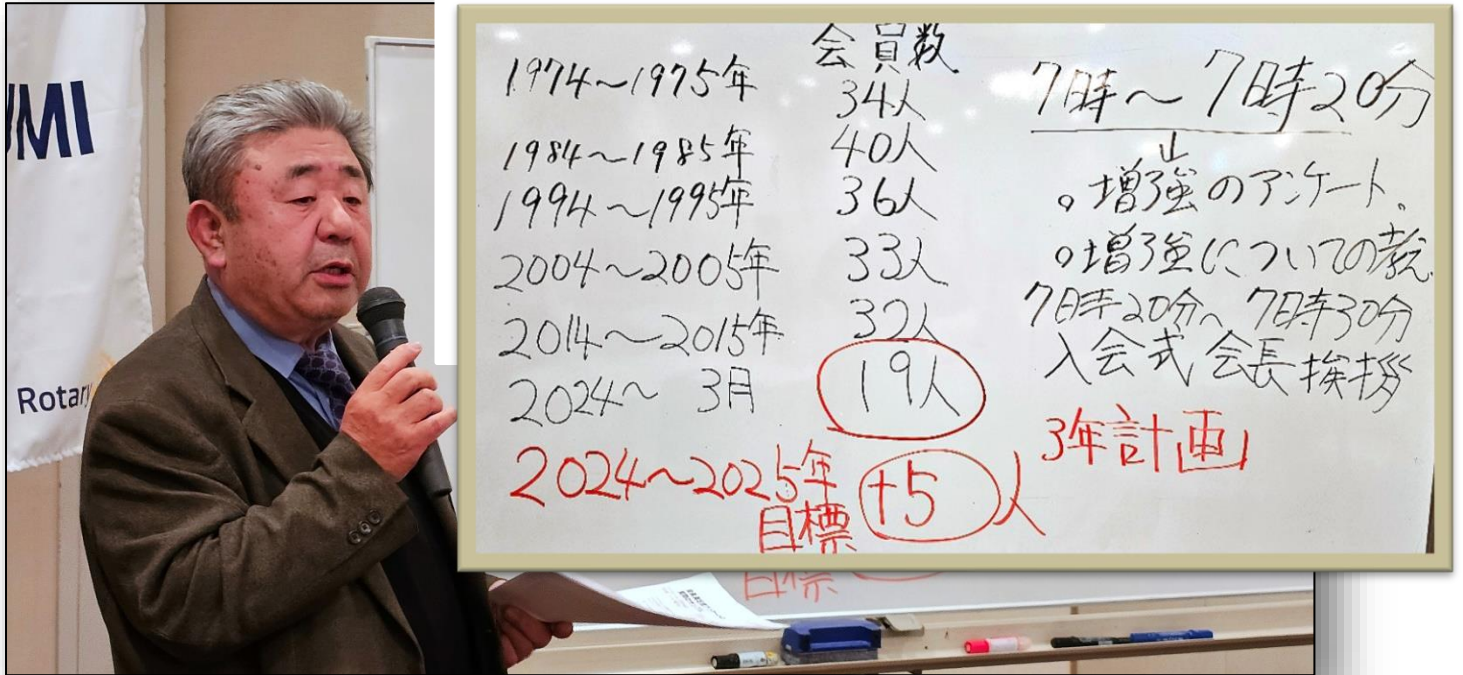 UMI
Rotary
会員数
1974〜1975年 34人
1984〜1985年 40人
1994〜1995年 36人
2004〜2005年 33人
2014〜2015年 32人
2024〜 3月 19人
2024〜2025年
目標 +5人
7時〜7時20分
↓
。増強のアンケート、
。増強についての考え
7時20分〜7時30分
入会式 会長挨拶
3年計画
目標